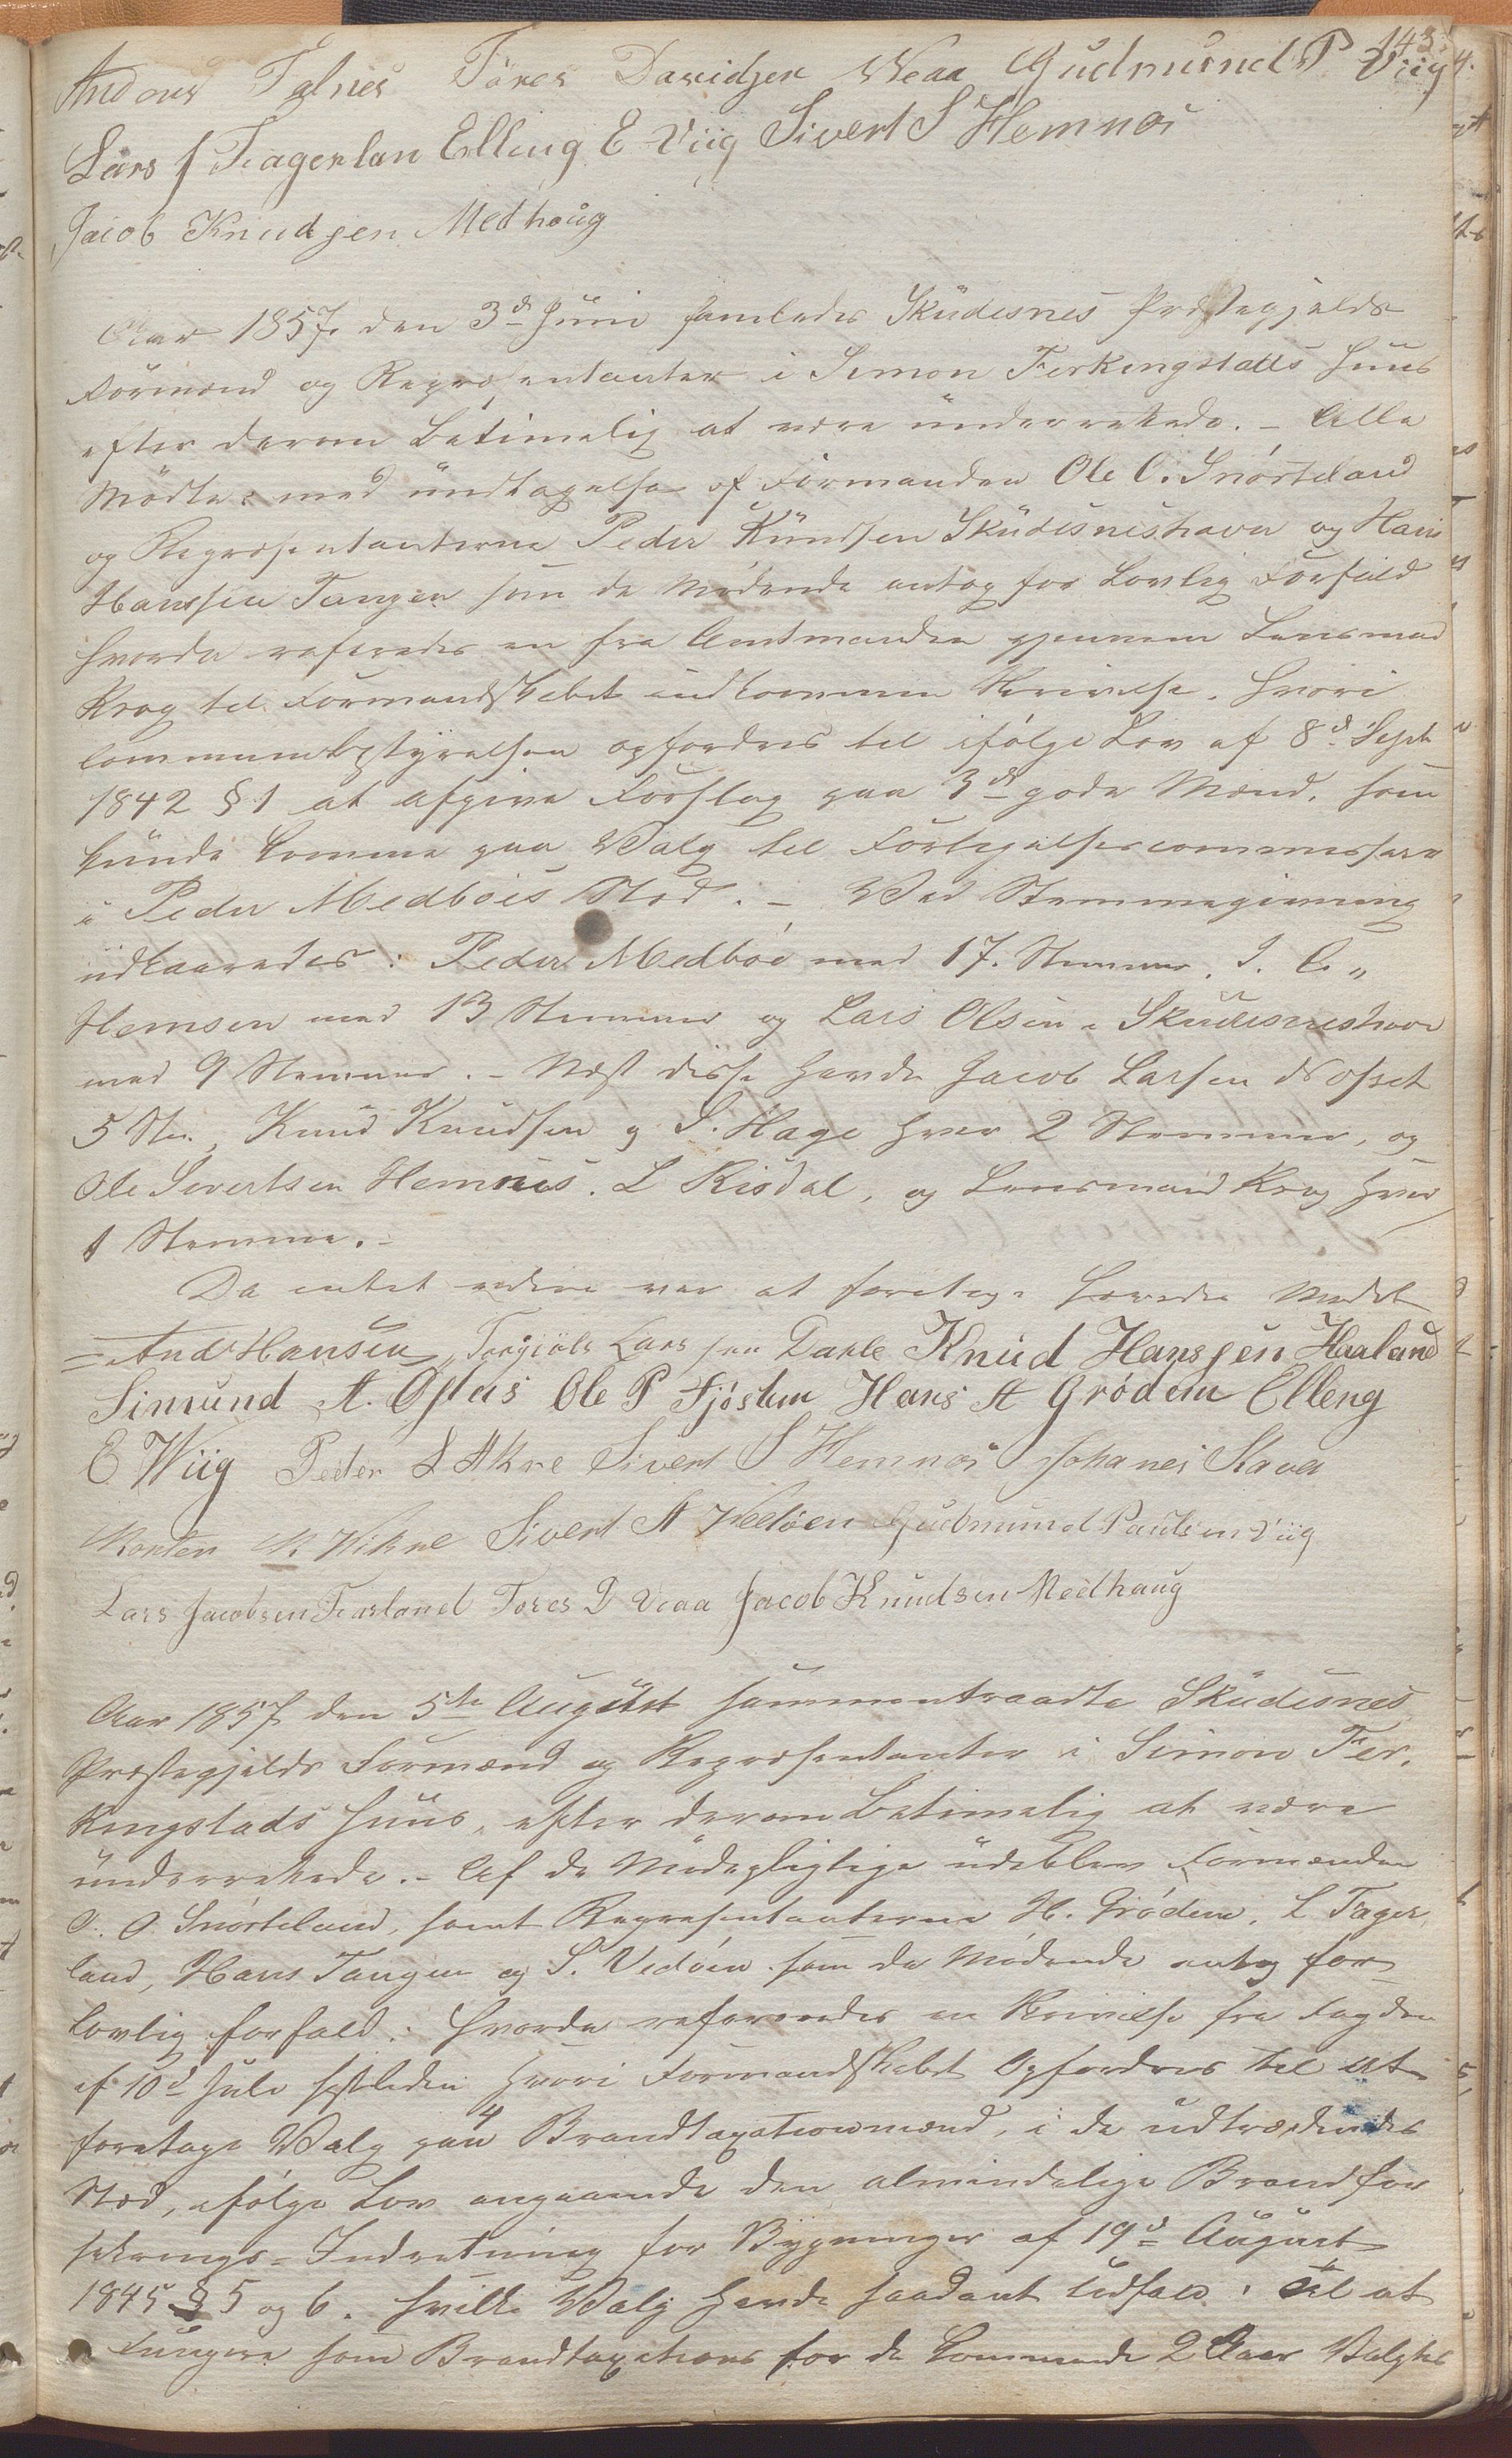 143.
Anders Falnes Tøres Davidsen Weaa Gudmund P Viig
Lars J Fagerlan Elling E Viig Sivert S Hemnæs
Jacob Knudsen Medhoug
Aar 1857 den 3d Juni samledes Skudesnes Præstegjelds
Formænd og Repræsentanter i Simon Ferkingstads Huus
efter derom betimelig at være underrettede. – Alle
Mødte med undtagelse af Formanden Ole O. Snørteland
og Repræsentanterne Peder Knudsen Skudesneshavn og Hans
Hanssen Tangen som de Mødende antog for Lovlig Forfald
hvorda refereredes en fra Amtmanden gjennem Lensmand
Krog til Formandskabet indkommen Skrivelse, hvori
Communebestyrelsen opfordres til ifølge Lov af 8d Sept
1842 § 1 at afgive Forslag paa 3de gode Mænd, som
kunde komme paa Valg til Forligelsescommissair
i Peder Medbøes Sted. – Ved Stemmegivning
udkaaredes: Peder Medbøe med 17. Stemmer, I. C.
Hemsen med 13 Stemmer og Lars Olsen i Skudesneshavn
med 9 Stemmer. – Næst disse havde Jacob Larsen
5 St., Knud Knudsen og S. Hage hver 2 Stemmer, og
Ole Sivertsen Hemnes, L Risdal, og Lensmand Krog hver
1 Stemme. –
Da intet videre var at foretage hævedes Mødet
And Hansen Torgiøls Larssen Dahle Knud Hanssen Haaland
Simund A. Ole P Fjøslun Hans A Grødem Elleng
E Wiig Peder L Akre Sivert S Hemnæs Johanes Stava
Morten M Vikre Sivert A Vedøen Gudmund Paulsen Viig
Lars Jacobsen Farland Tores D Veaa Jacob Knudsen Medhaug
Aar 1857 den 5te August sammentraadte Skudesnes
Præstegjelds Formænd og Repræsentanter i Simon Fer-
kingstads Huus, efter derom betimelig at være
underrettede. – Af de Mødepligtige udeblev Formanden
O. O. Snørteland, samt Repræsentanterne H. Grødem, L Fager-
land, Hans Tangen og S. Vedøen som de Mødende antog for
lovlig forfald. hvorda refereredes en Skrivelse fra Fogden
af 10d Juli sistleden hvori Formandskabet Opfordres til at
foretage Valg paa 4 Brandtaxationsmænd, i de udtrædendes
Sted, ifølge Lov angaaende den almindelige Brandfor
sikrings-Indretning for Bygninger af 19d August
1845 § 5 og 6. hvilke Valg havde saadant Udfald: Til at
Fungere som Brandtaxations for de kommende 2 Aar Valgtes